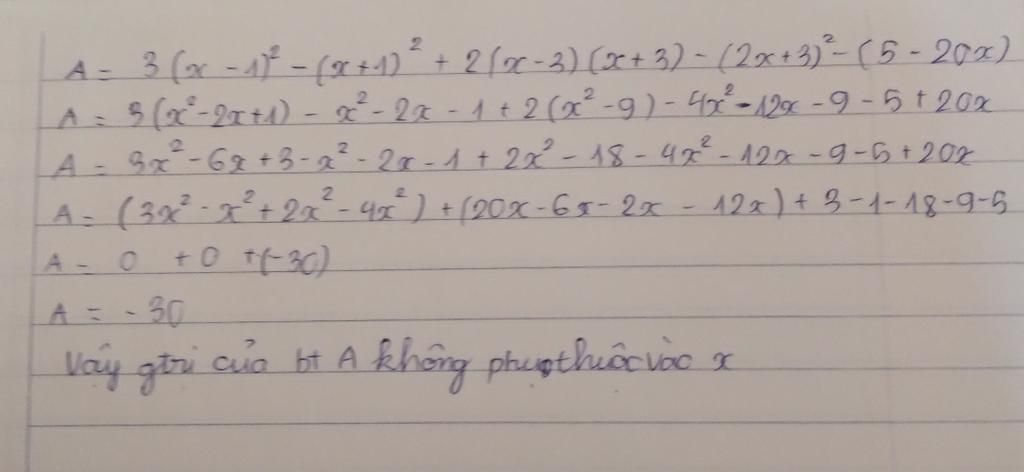 A = 3(x - 1)² - (x+1)² + 2(x-3)(x+3) - (2x+3)² - (5 - 20x)
A = 3(x²-2x+1) - x² - 2x - 1 + 2(x²-9) - 4x² - 12x - 9 - 5 + 20x
A = 3x² - 6x + 3 - x² - 2x - 1 + 2x² - 18 - 4x² - 12x - 9 - 5 + 20x
A = (3x² - x² + 2x² - 4x²) + (20x - 6x - 2x - 12x) + 3 - 1 - 18 - 9 - 5
A = 0 + 0 + (-30)
A = - 30
Vậy gtri của bt A không phụ thuộc vào x